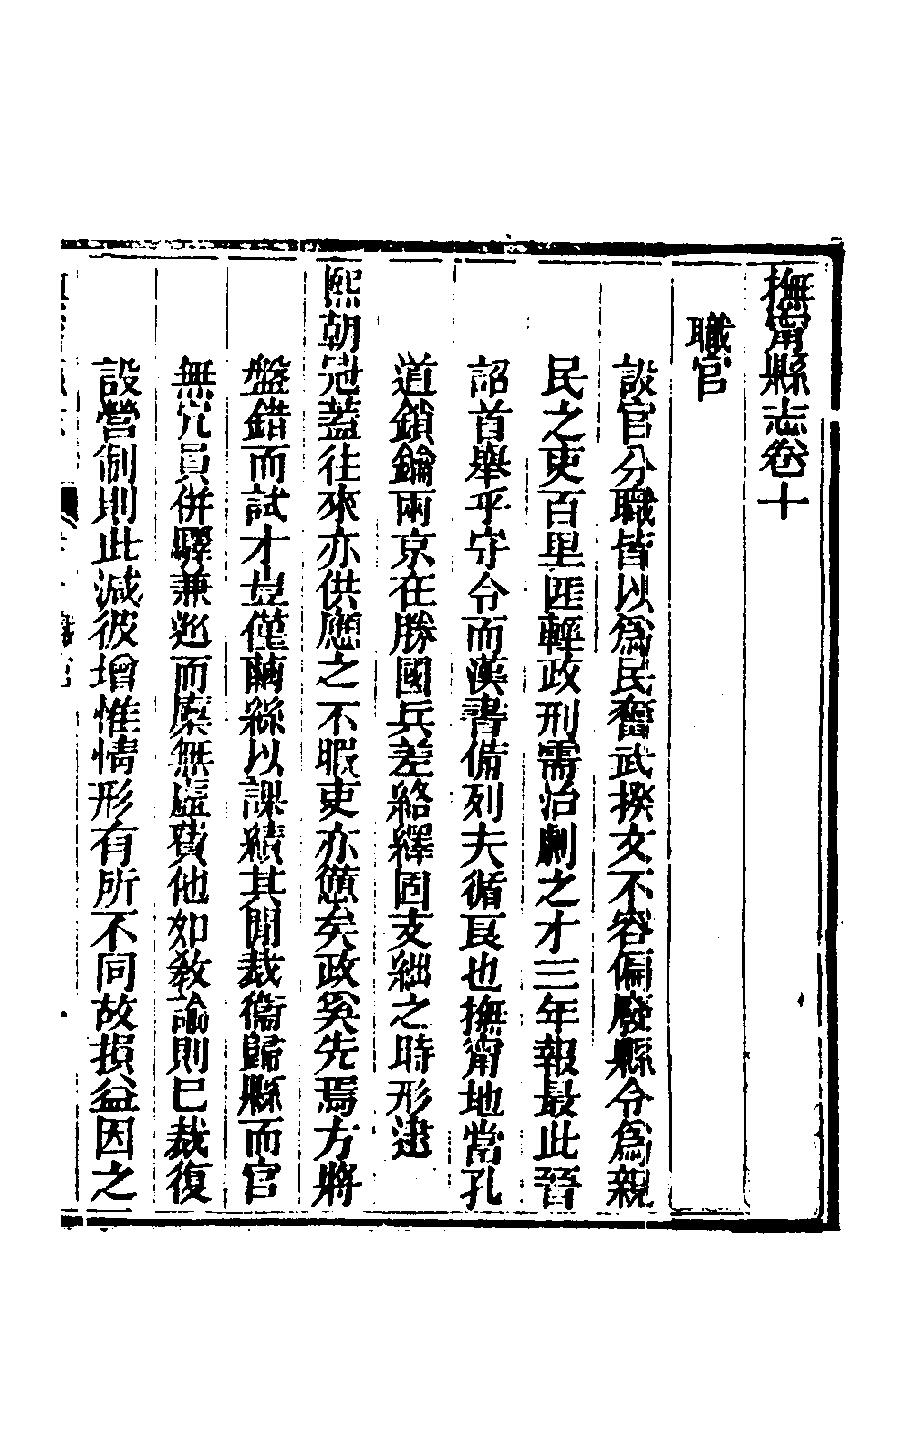 撫甯縣志卷十
職官
設官分職皆以為民奮武揆文不容偏廢縣令為親
民之吏百里匪輕政刑需治劇之才三年報最此晉
詔首舉乎守令而漢書備列夫循良也撫甯地當孔
道鎖鑰兩京在勝國兵差絡繹固支絀之時形逮
熙朝冠蓋往來亦供應之不暇吏亦憊矣政奚先焉方將
盤錯而試才豈僅繭絲以課績其閒裁衞歸縣而官
無冗員併驛兼廵而糜無虛費他如教諭則已裁復
設營制則此減彼增惟情形有所不同故損益因之